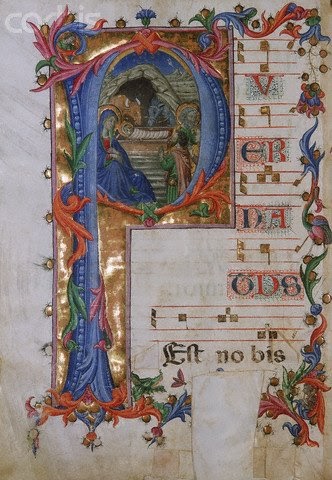 corbis
PV
ER
NA
TUS
Est no bis